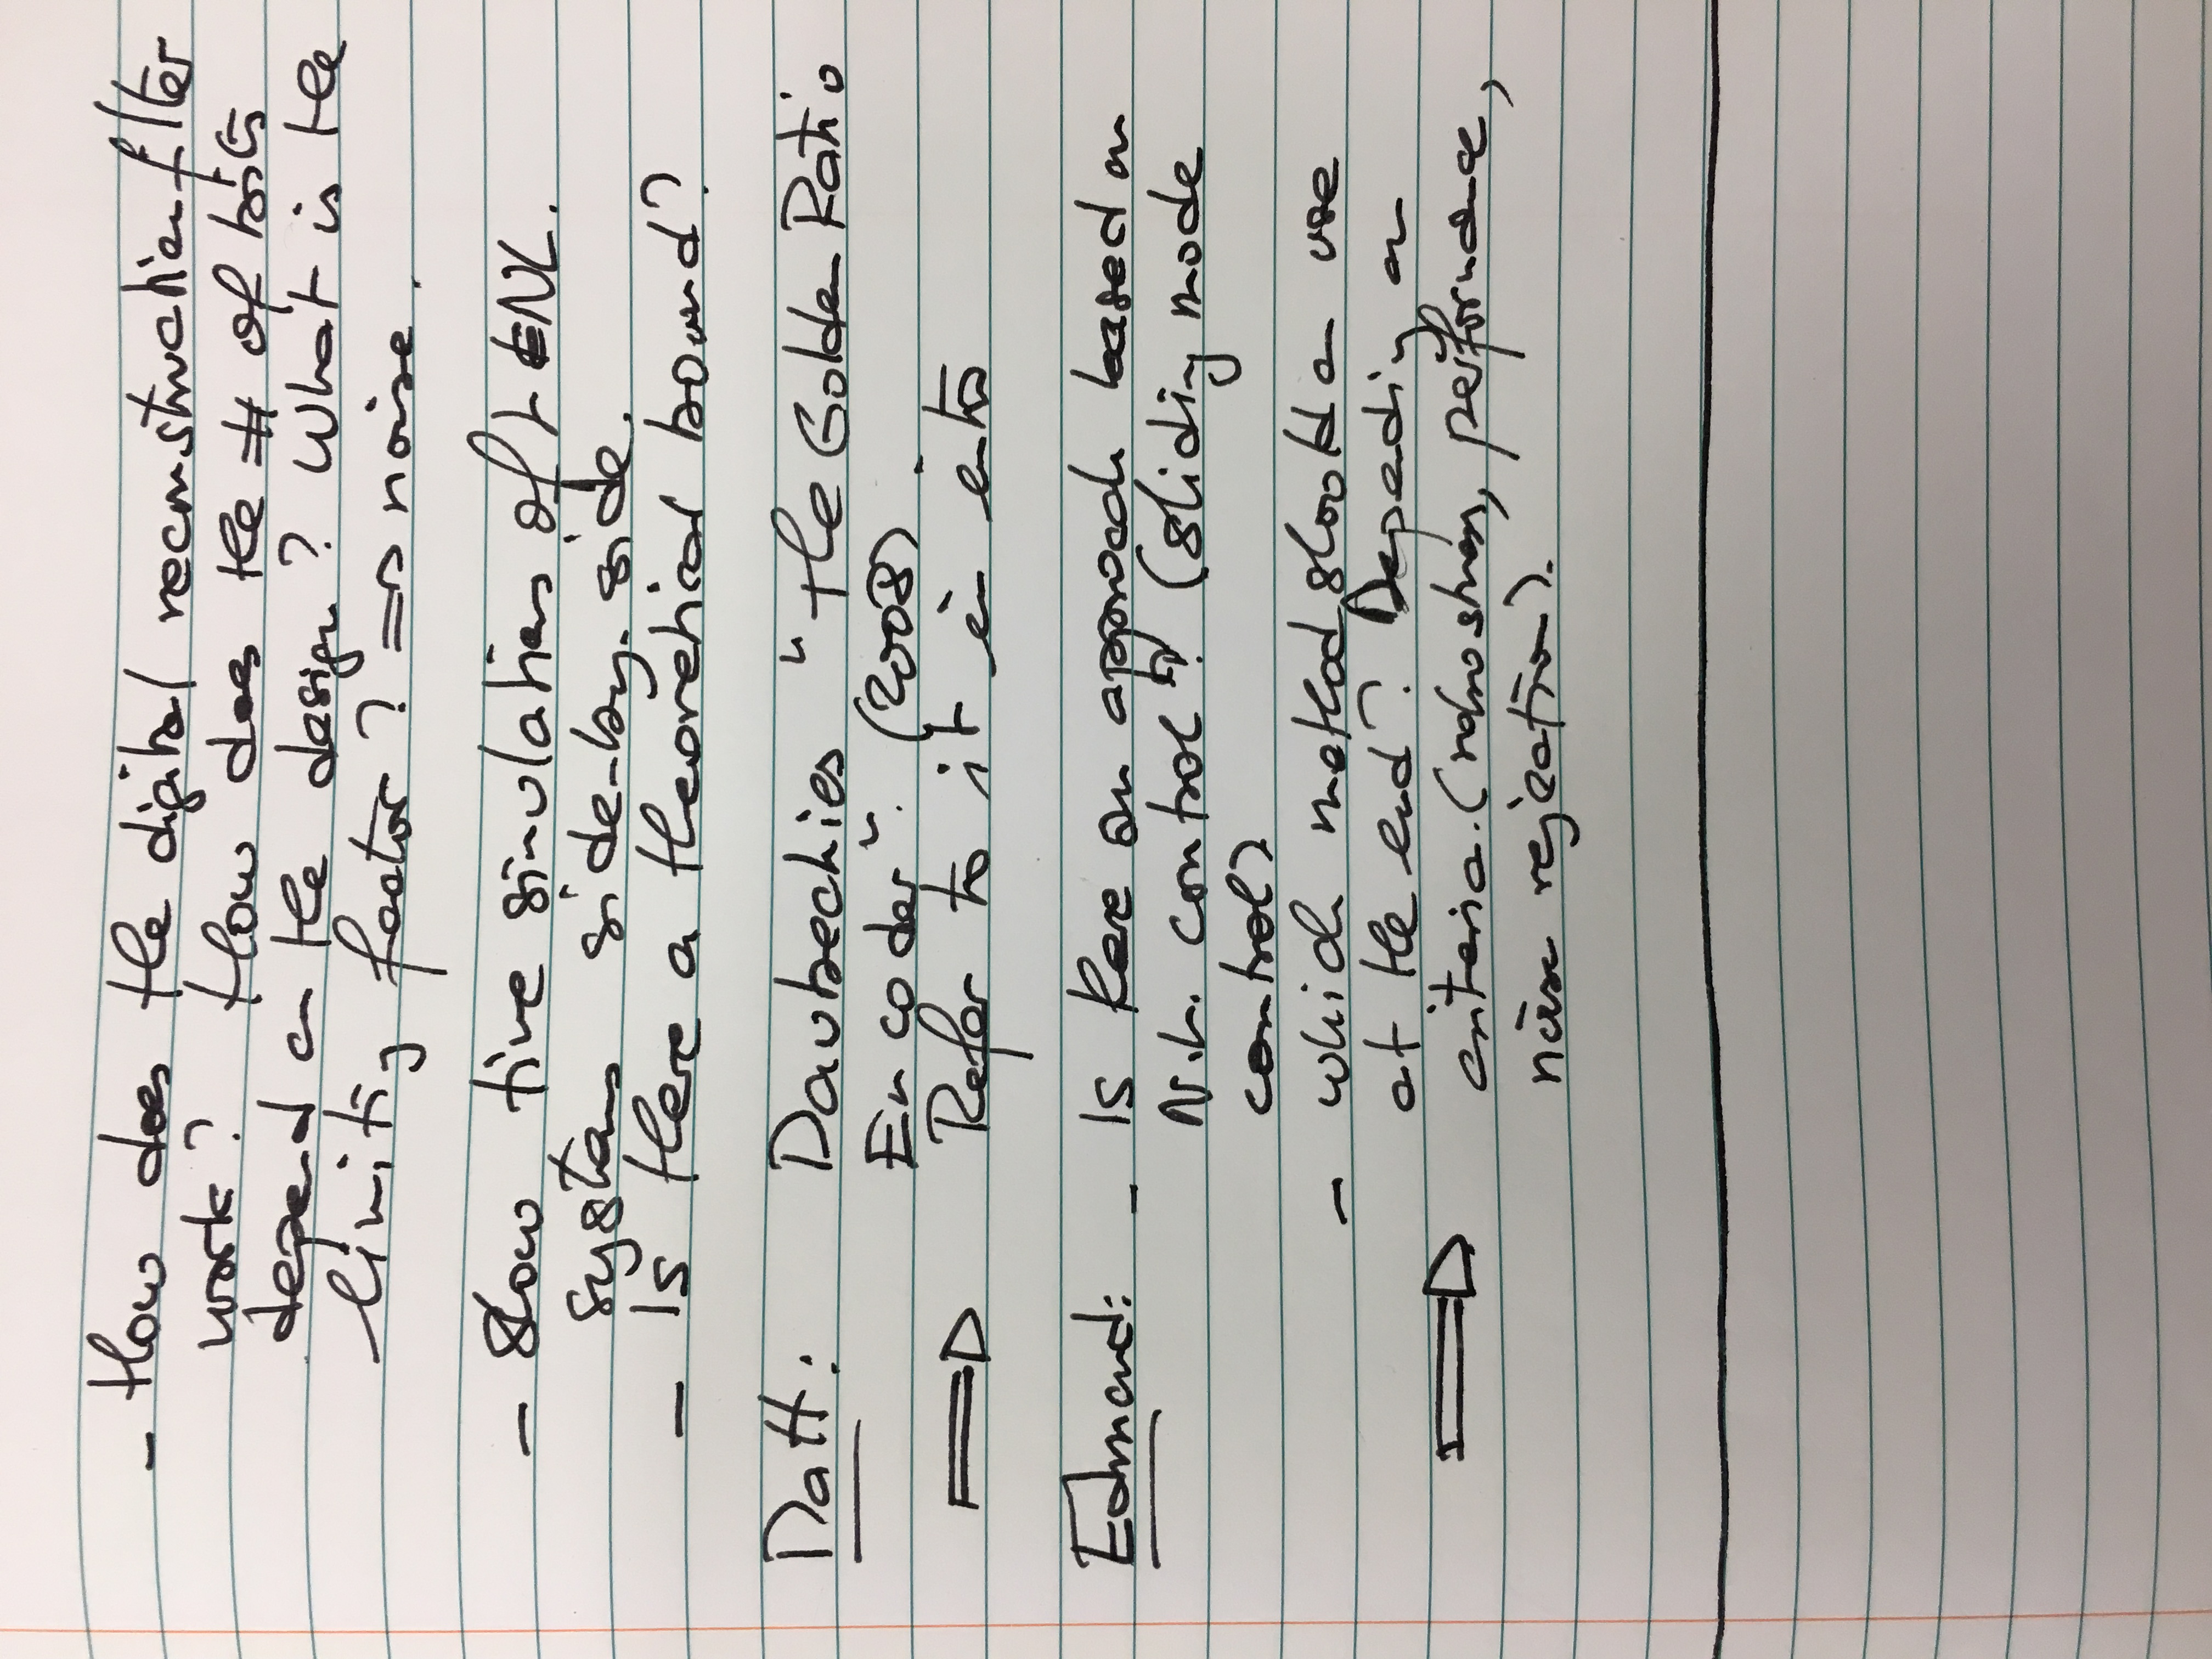 - How does the digital reconstruction filter
work? How does the # of bits
depend on the design? What is the
limiting factor? => noise.
- Show time simulations of L & NL.
systems side-by-side.
- Is there a theoretical bound?
Matt: Daubechies "The Golden Ratio
Encoder". (2008).
⇒ Refer to it in intro
Edmund: - Is there an approach based on
N.L. control? (sliding mode
control)
- which method should one use
at the end? Depending on
⇒ criteria. (robustness, performance,
noise rejection).